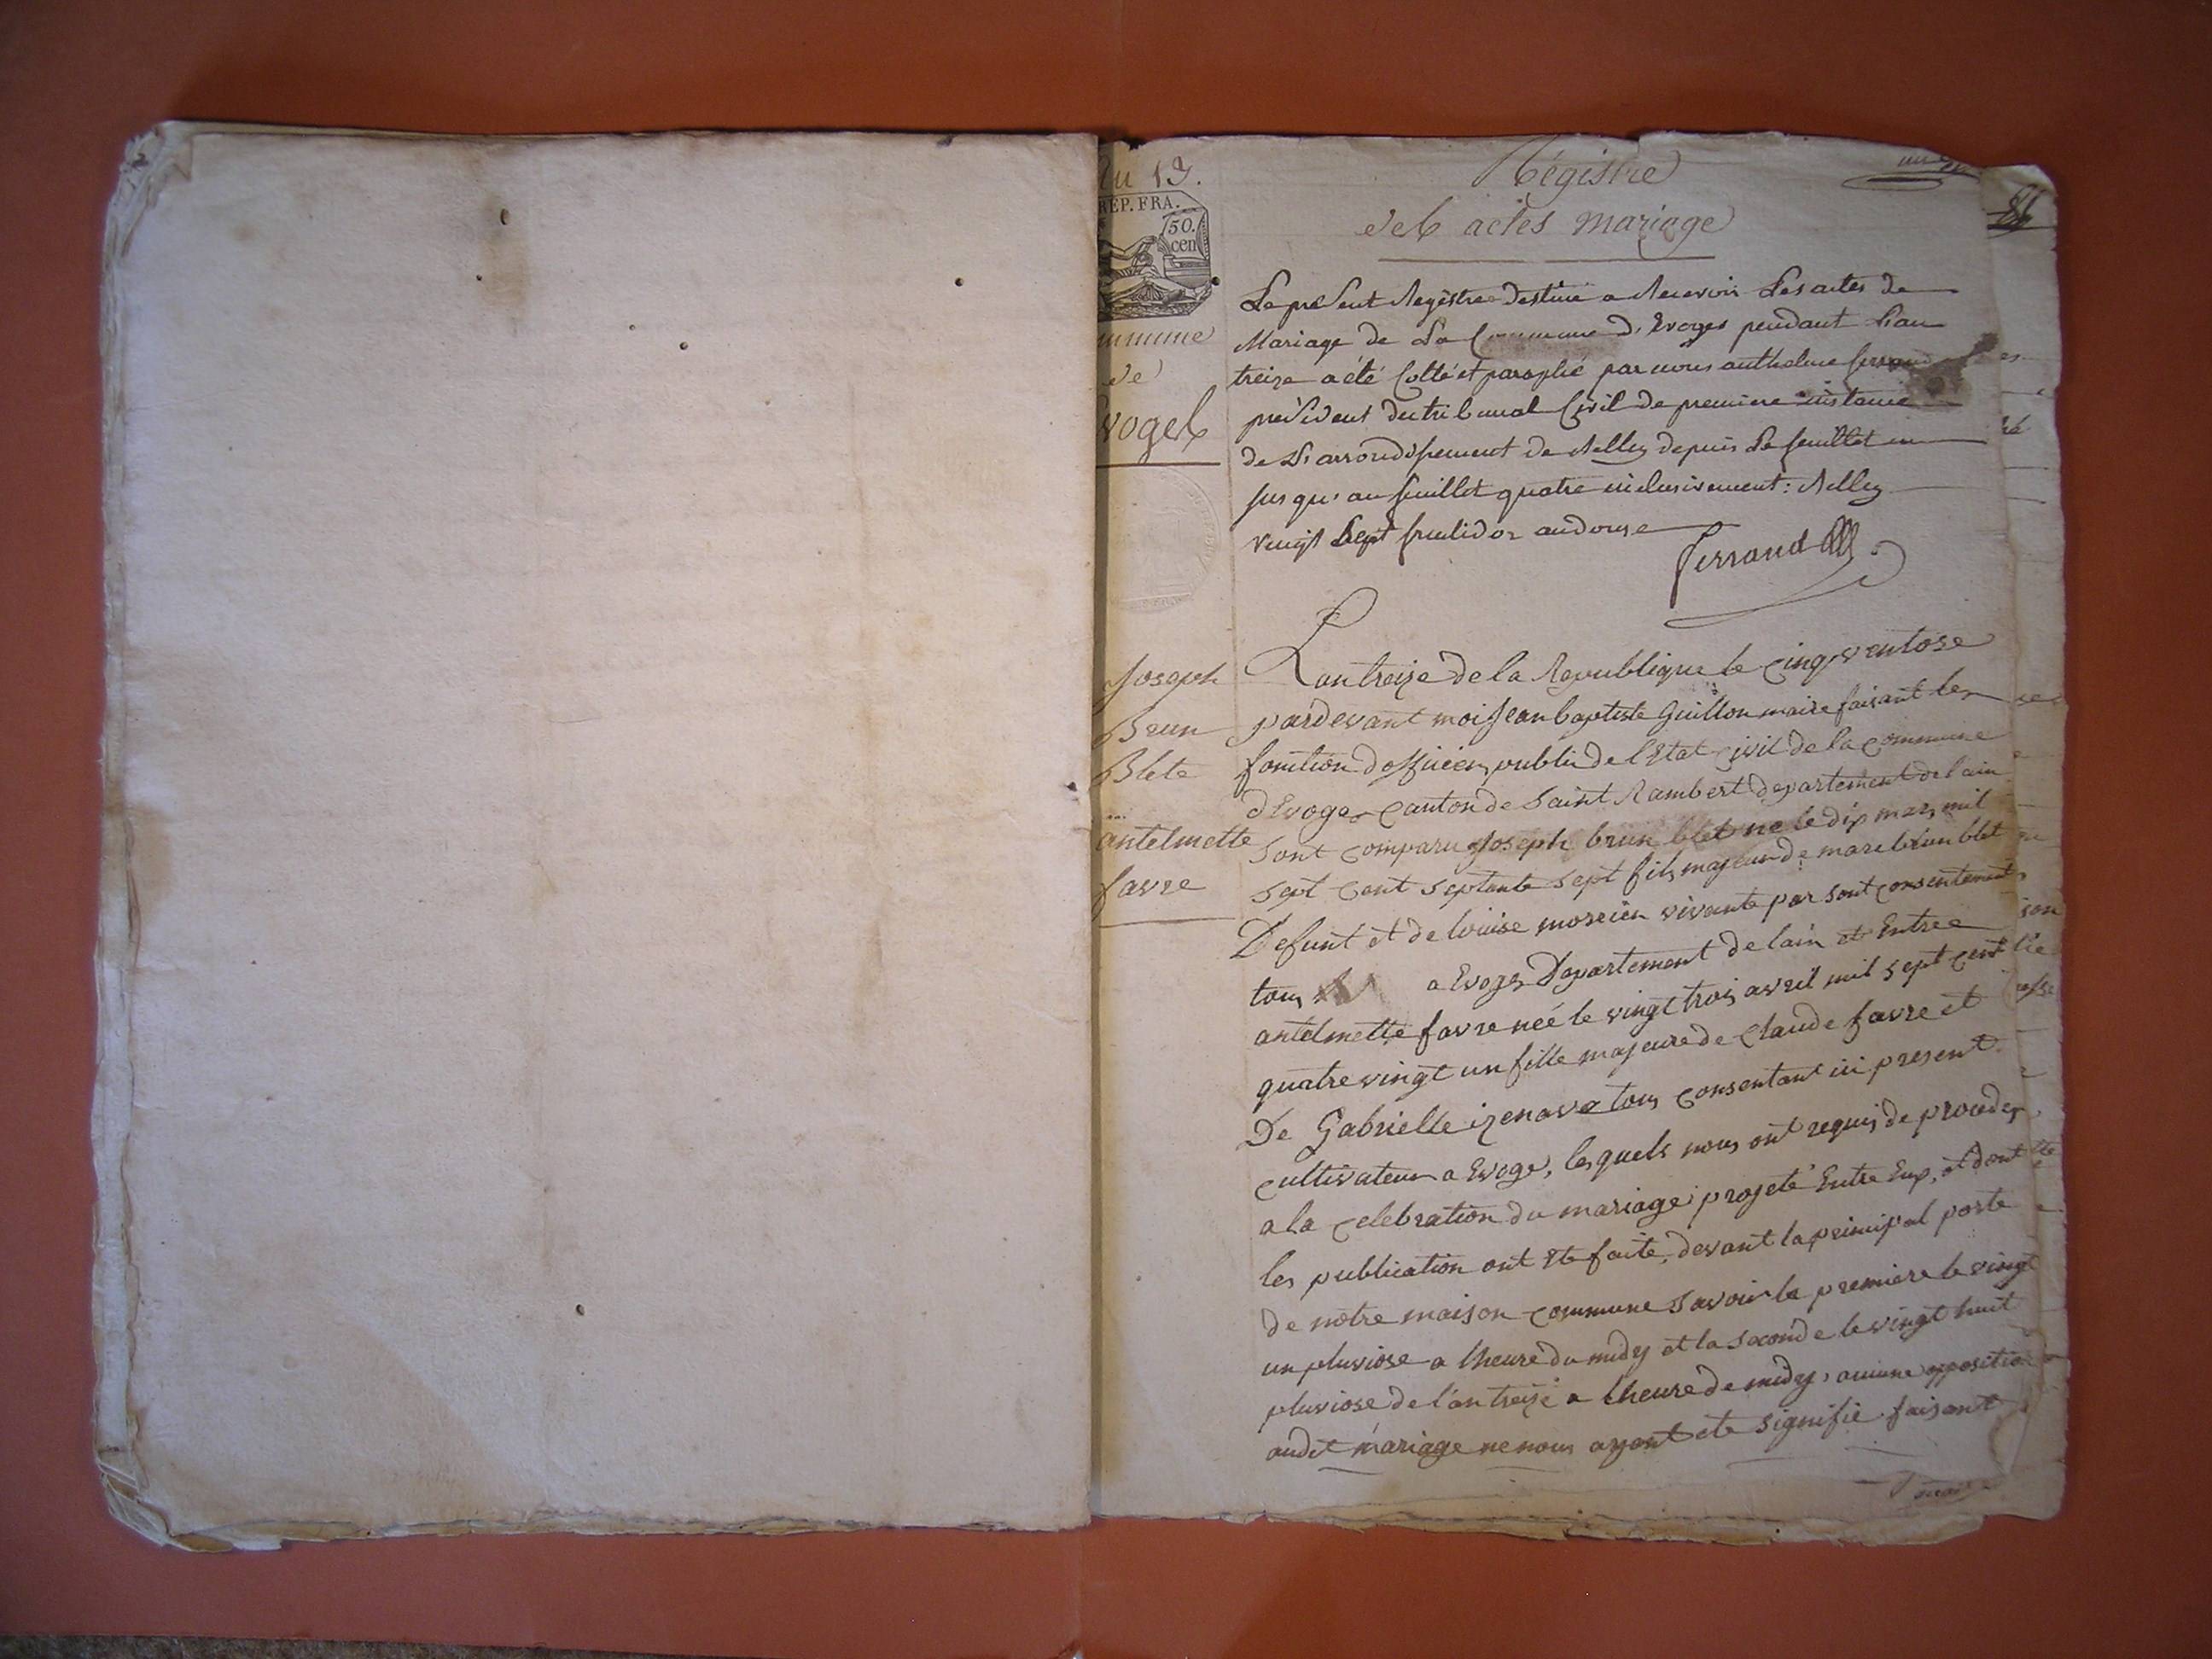 an 13.
REP. FRA.
50.
cen
Commune
de
Evoges
Joseph
Brun
Blete
antelmette
favre
Régistre
des actes mariage
Le present Registre destiné a Recevoir Les actes de
Mariage de La Commune d'Evoges pendant L'an
treize a été Cotté et paraphé par nous anthelme ferrand
président du tribunal Civil de premiere instance
de L'arrondissement de Belley depuis Le feuillet un
jusqu'au feuillet quatre inclusivement: Belley
vingt Sept fructidor an douze
ferrand
L'an treize de la Republique le cinq ventose
pardevant moi Jean baptiste Guillon maire faisant les
fonction d'officier public de l'Etat civil de la commune
d'Evoges canton de Saint Rambert departement de l'ain
Sont comparu Joseph brun blet né le dix mars mil
sept cent septante sept fils majeur de marc brun blet
Defunt et de louise vivante par sont consentement
tous a Evoges Departement de lain et Entre
antelmette favre née le vingt trois avril mil sept cent
quatre vingt un fille majeure de Claude favre et
De Gabrielle izenave tous consentant ici present
cultivateur a Evoge, lesquels nous ont requis de proceder
a la celebration du mariage projeté Entre Eux, et dont
les publication ont Eté faite, devant la principal porte
de nôtre maison commune Savoir la premiere le vingt
un pluviose a lheure du midy et la Seconde le vingt huit
pluviose de l'an treize a lheure de midy, aucune opposition
audit mariage ne nous ayant ete signifie faisant